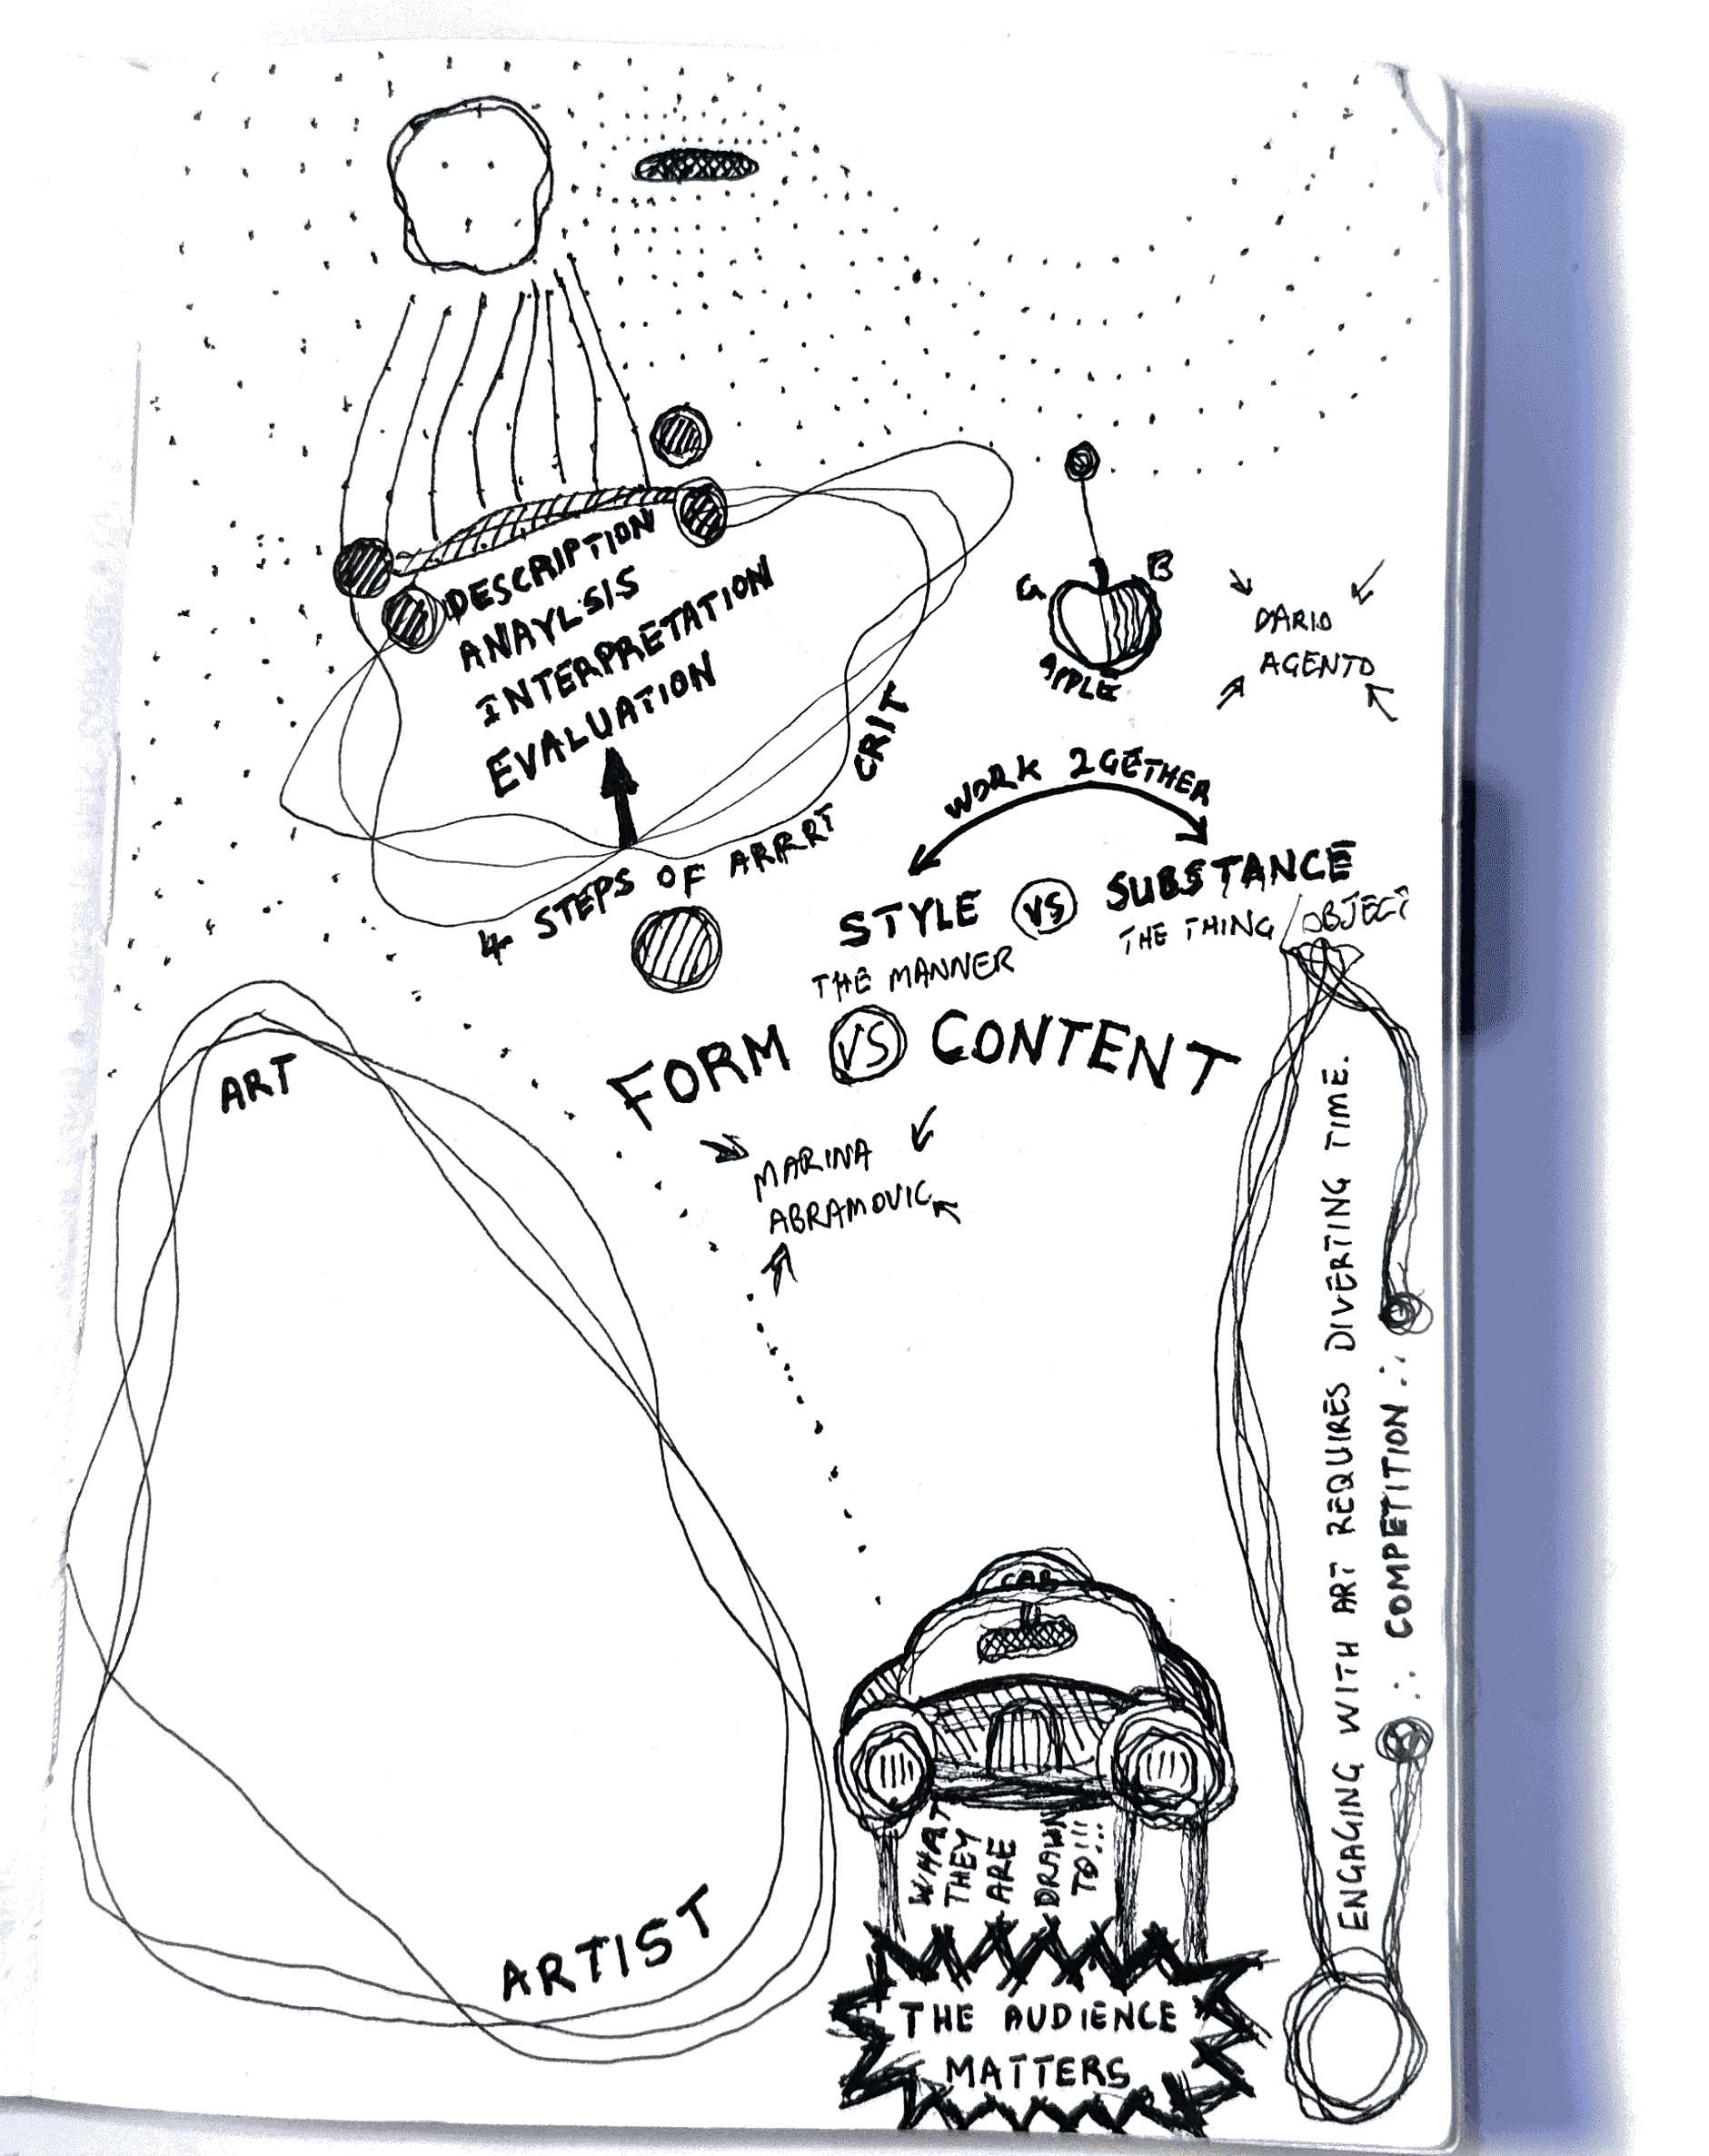 DESCRIPTION
ANAYLSIS
INTERPRETATION
EVALUATION
4 STEPS OF ARRRT CRIT
G B
APPLE
DARIO
AGENTO
WORK 2GETHER
STYLE VS SUBSTANCE
THE MANNER
THE THING / OBJECT
FORM VS CONTENT
MARINA
ABRAMOVIC
ART
ARTIST
ENGAGING WITH ART REQUIRES DIVERTING TIME.
COMPETITION
CAB
WHAT
THEY
ARE
DRAWN
TO!!!
THE AUDIENCE
MATTERS